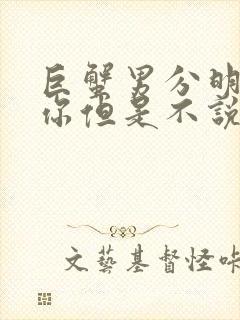 巨蟹男分明
你但是不說
文藝基督怪咔